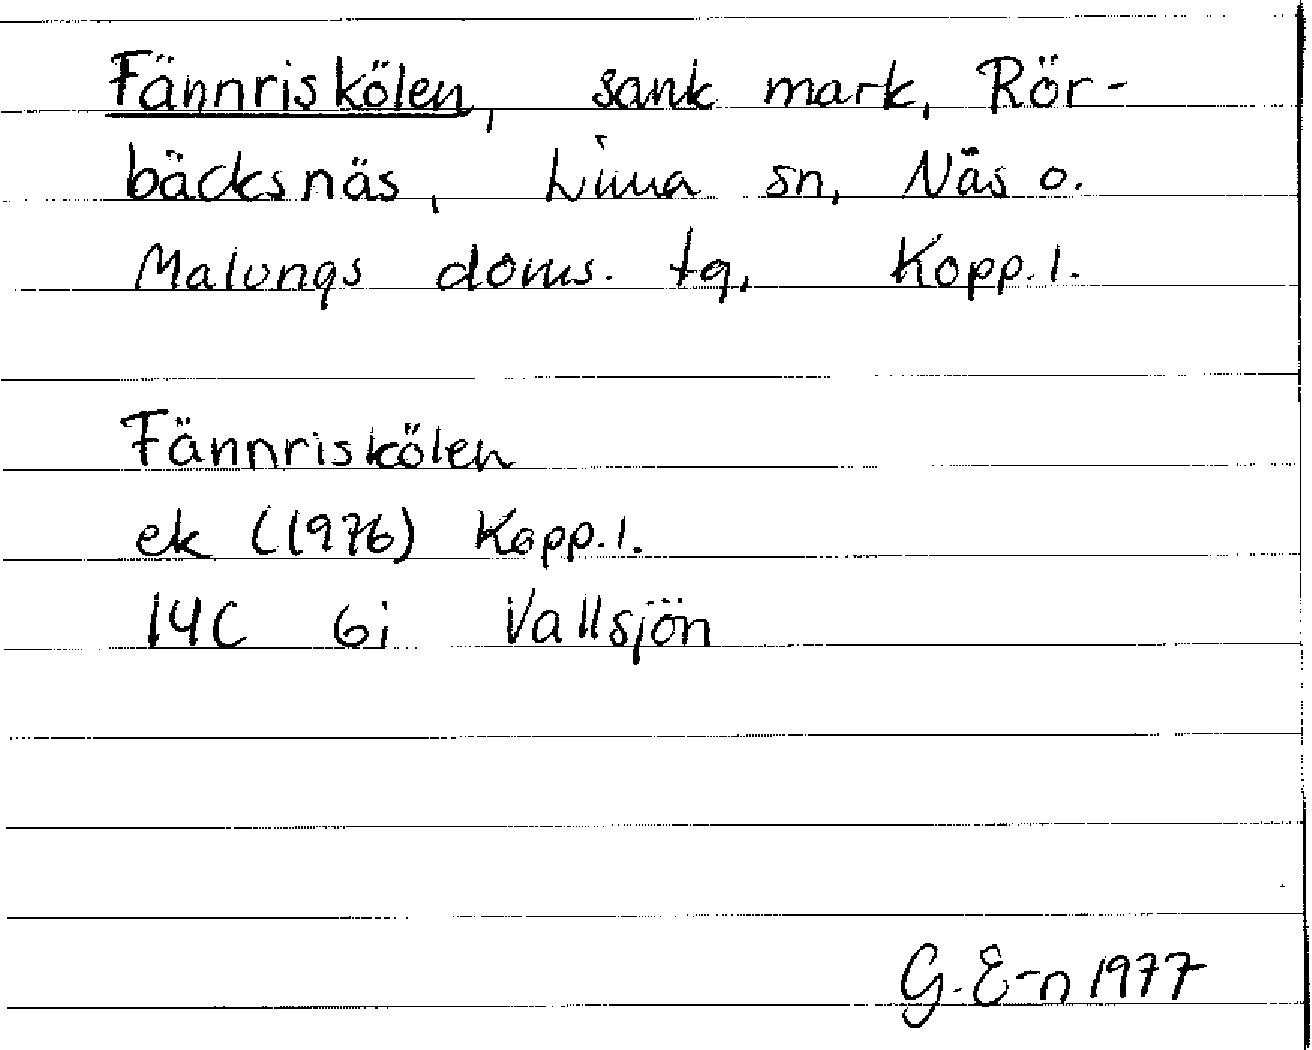 Fännriskölen, sank mark, Rör-
bäcksnäs, Lima sn, Näs o.
Malungs doms. tg, Kopp. l.
Fännriskölen
ek (1976) Kopp. l.
14C 6i Vallsjön
G. E-n 1977